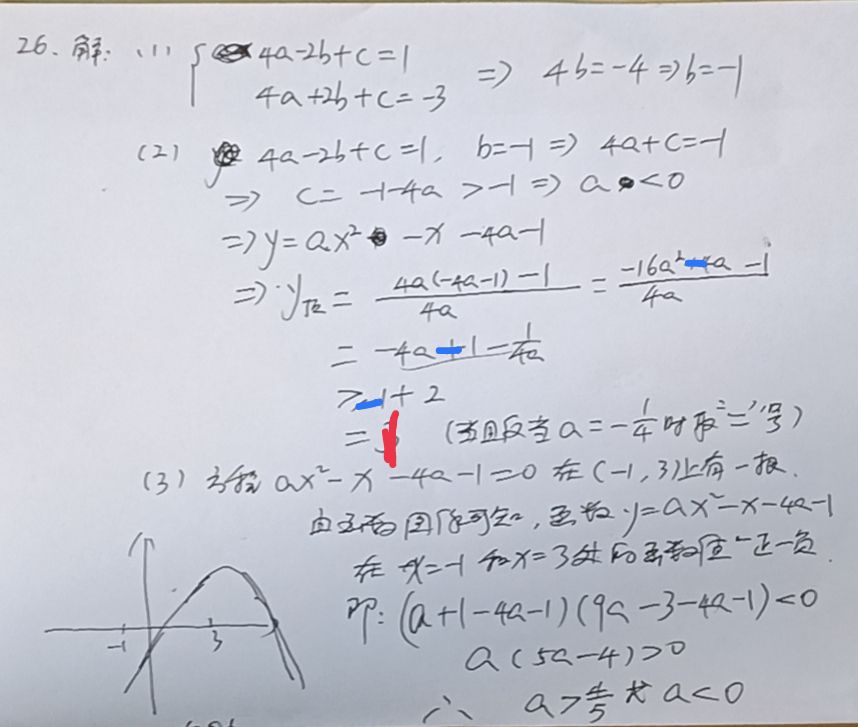 26、解：(1) { 4a-2b+c=1
4a+2b+c=-3 => 4b=-4 => b=-1
(2) 4a-2b+c=1, b=-1 => 4a+c=-1
=> c=-1-4a >-1 => a<0
=> y=ax² -x -4a-1
=> y顶 = \frac{4a(-4a-1)-1}{4a} = \frac{-16a²-4a-1}{4a}
= -4a-1-\frac{1}{4a}
≥-1+2
=1 (当且仅当a=-\frac{1}{4}时取"="号)
(3) 方程 ax²-x-4a-1=0 在(-1,3)上有一根.
由函数图像可知，函数 y=ax²-x-4a-1
在 x=-1 和 x=3处的函数值一正一负.
即: (a+1-4a-1)(9a-3-4a-1)<0
a(5a-4)>0
-1 3
∴ a>\frac{4}{5} 或 a<0